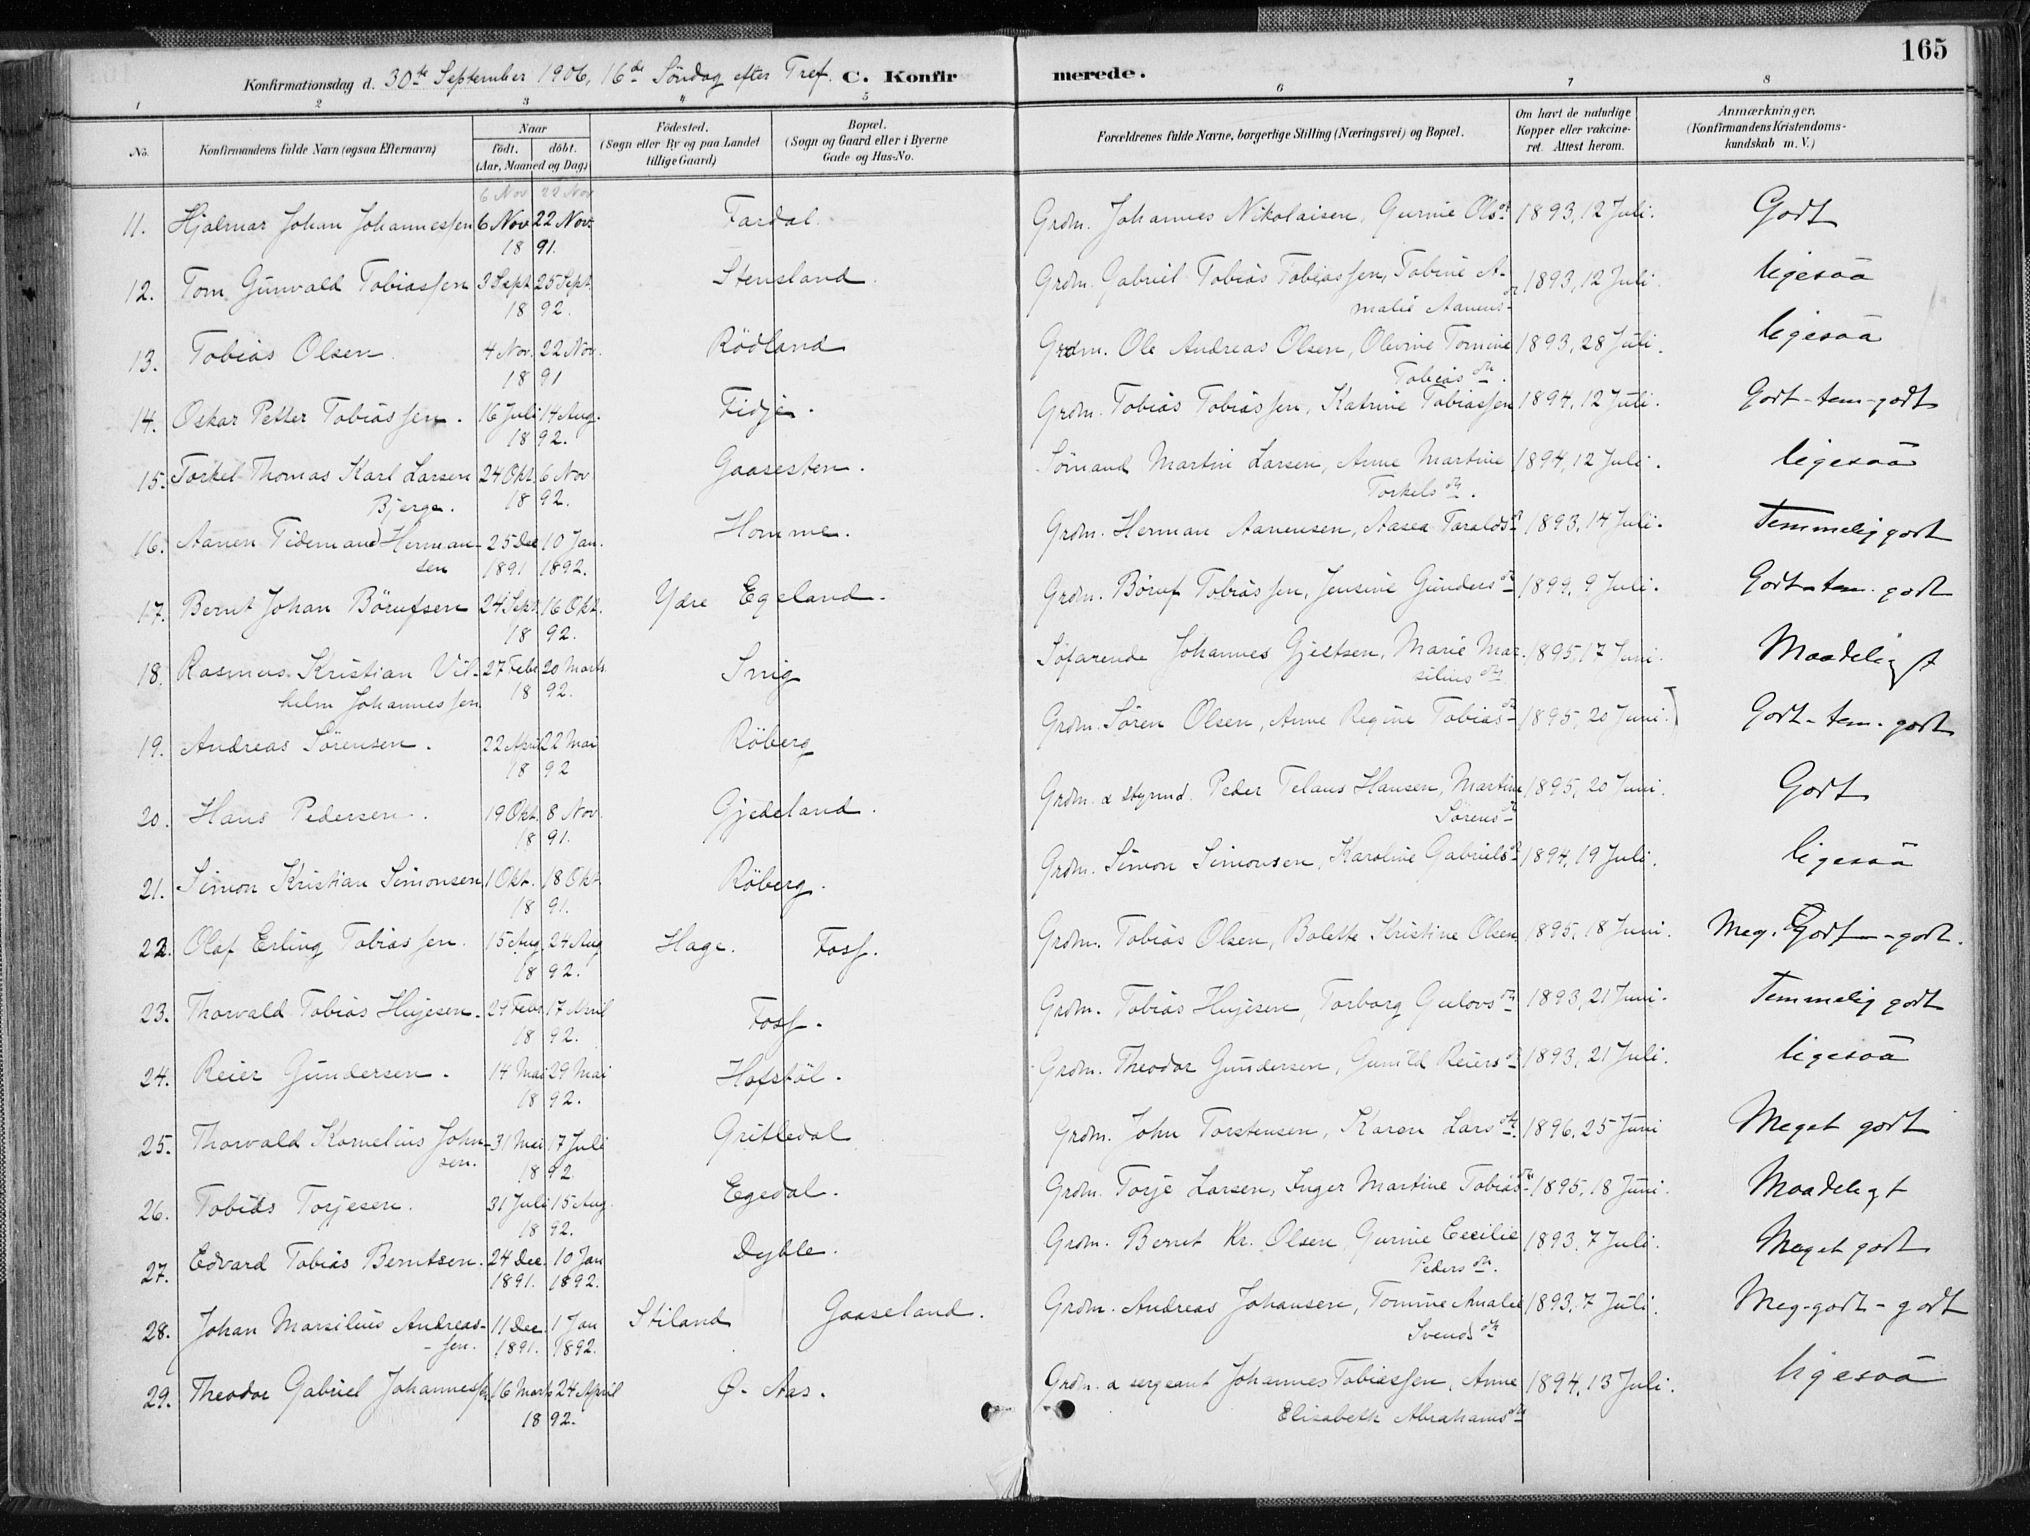 165
Konfirmationsdag d. 30te September 1906, 16de Söndag efter Tref. C. Konfirmerede.
1 2 3 4 5 6 7 8
No. Konfirmandens fulde Navn (ogsaa Efternavn) Naar födt. döbt. (Aar, Maaned og Dag) Födested. (Sogn eller By og paa Landet tillige Gaard) Bopæl. (Sogn og Gaard eller i Byerne Gade og Hus-No. Forældrenes fulde Navne, borgerlige Stilling (Næringsvei) og Bopæl. Om havt de naturlige Kopper eller vakcineret. Attest herom. Anmærkninger, (Konfirmandens Kristendomskundskab m. V.)
6 Nov 22 Nov
11. Hjalmar Johan Johannessen 6 Nov 22 Nov. Fardal. Grdm. Johannes Nikolaisen, Gurine Olsdt 1893, 12 Juli. Godt
18 91.
12. Tom Gunvald Tobiassen 3 Sept. 25 Sept. Stensland. Grdm. Gabriel Tobias Tobiassen, Tobine A- 1893, 12 Juli. ligesaa
18 92. malie Aanensdt
13. Tobias Olsen. 4 Nov. 22 Nov. Rödland Grdm. Ole Andreas Olsen, Olevine Tomine 1893, 28 Juli. ligesaa
18 91 Tobiasdtr.
14. Oskar Petter Tobiassen. 16 Juli 14 Aug. Fidje. Grdm. Tobias Tobiassen, Katrine Tobiassen 1894, 12 Juli. Godt-tem-godt
18 92.
15. Torkel Thomas Karl Larsen 24 Okt. 6 Nov Gaasesten. Sömand Martin Larsen, Anne Martine 1894, 12 Juli. ligesaa
Bjerge. 18 92. Torkelsdtr.
16. Aanen Tidemand Herman- 25 Dec 10 Jan. Homme. Grdm. Herman Aanensen, Aasea Taraldsdt 1893, 14 Juli. Temmelig godt
sen 1891 1892.
17. Bernt Johan Börufsen 24 Sept. 16 Okt. Ydre Egeland. Grdm. Böruf Tobiassen, Jensine Gundersdtr 1899, 9 Juli. Godt-tem. godt
18 92.
18. Rasmus Kristian Vil- 27 Febr 20 Marts. Svig Söfarende Johannes Gjertsen, Marie Mar- 1895, 17 Juni. Maadeligt
helm Johannessen 18 92. siliusdtr
19. Andreas Sörensen. 22 April 22 Mai Röberg Grdm. Sören Olsen, Anne Regine Tobiasdtr 1895, 20 Juni. Godt-tem-godt
18 92
20. Hans Pedersen. 19 Okt. 8 Nov. Gjedeland. Grdm. & styrmd. Peder Telaus Hansen, Martine 1895, 20 Juni. Godt
18 91. Sörensdt
21. Simon Kristian Simonsen 1 Okt. 18 Okt. Röberg. Grdm. Simon Simonsen, Karoline Gabrielsdt 1894, 19 Juli. ligesaa
18 91.
22. Olaf Erling Tobiassen. 15 Aug. 24 Aug Hage. Foss. Grdm. Tobias Olsen, Bolette Kristine Olsen 1895, 18 Juni. Meg. Godt-godt.
18 92.
23. Thorvald Tobias Hujesen. 29 Febr. 17 April Foss. Grdm. Tobias Hujesen, Torborg Gulovsdtr 1893, 21 Juni. Temmelig godt
18 92.
24. Reier Gundersen. 14 Mai 29 Mai Hofstöl. Grdm. Theodor Gundersen, Gunild Reiersdt 1893, 21 Juli. ligesaa
18 92.
25. Thorvald Kornelius John- 31 Mai 17 Juli Gritledal Grdm. John Torstensen, Karen Larsdtr. 1896, 25 Juni Meget godt
sen. 18 92
26. Tobias Torjesen. 31 Juli 15 Aug. Egedal. Grdm. Torje Larsen, Inger Martine Tobiasdtr 1895, 18 Juni. Maadeligt
18 92.
27. Edvard Tobias Berntsen. 24 Dec. 10 Jan Dyble. Grdm. Bernt Kr. Olsen, Gurine Cecilie 1893, 7 Juli. Meget godt
1891. 1892. Pedersdtr.
28. Johan Marsilius Andreas- 11 Dec. 1 Jan Stiland Gaaseland. Grdm. Andreas Johansen, Tomine Amalie 1893, 7 Juli. Meg-godt-godt
-sen. 1891. 1892. Svendsdtr
29. Theodor Gabriel Johannessen 16 Marts 24 April Ø. Aas. Grdm. & sergeant Johannes Tobiassen, Anne 1894, 13 Juli. ligesaa
18 92. Elisabeth Abrahamsdtr